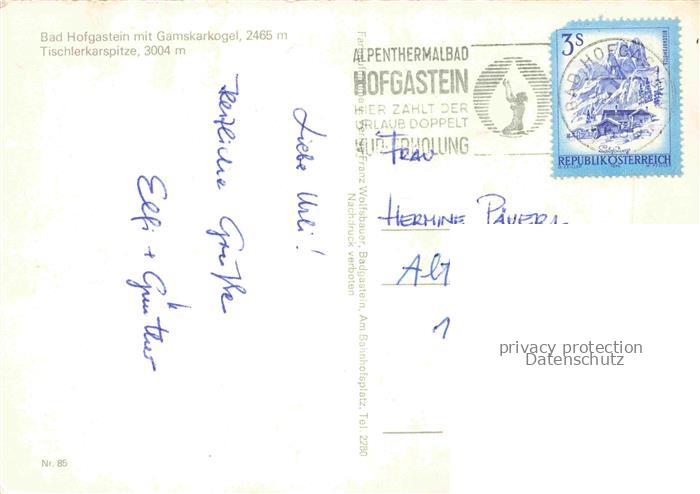 Bad Hofgastein mit Gamskarkogel, 2465 m
Tischlerkarspitze, 3004 m
Liebe Usli!
herzliche Grüße
Elfi + Günther
Nr. 85
Franz Wolfsbauer, Badgastein, Am Bahnhofsplatz, Tel. 2280
Nachdruck verboten
ALPENTHERMALBAD
HOFGASTEIN
HIER ZÄHLT DER
URLAUB DOPPELT
ZUR ERHOLUNG
BAD HOFGASTEIN
3 S
REPUBLIK ÖSTERREICH
Frau
Hermine
Alt
1
privacy protection
Datenschutz